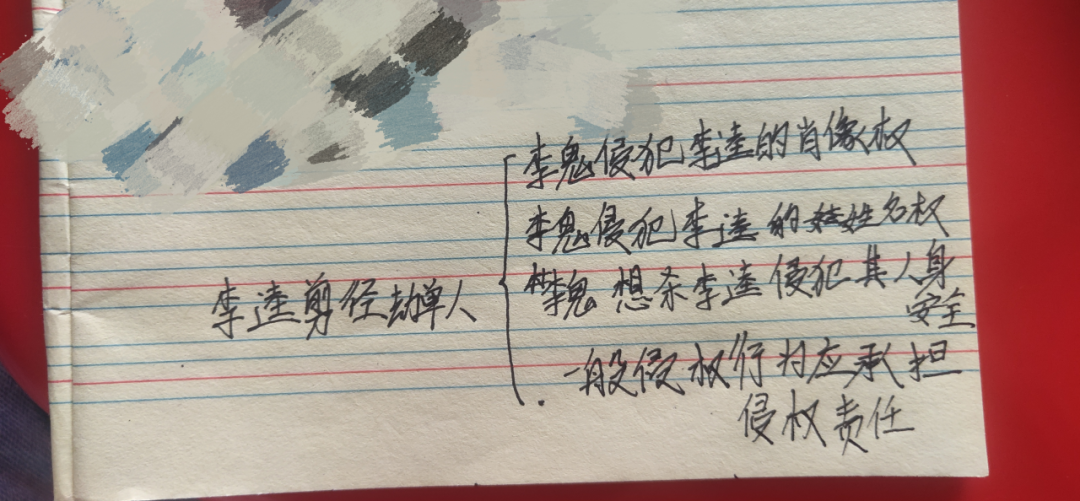 李鬼侵犯李逵的肖像权
李鬼侵犯李逵的姓名权
李鬼想杀李逵侵犯其人身
安全
李逵剪径劫单人
一般侵权行为应承担
侵权责任